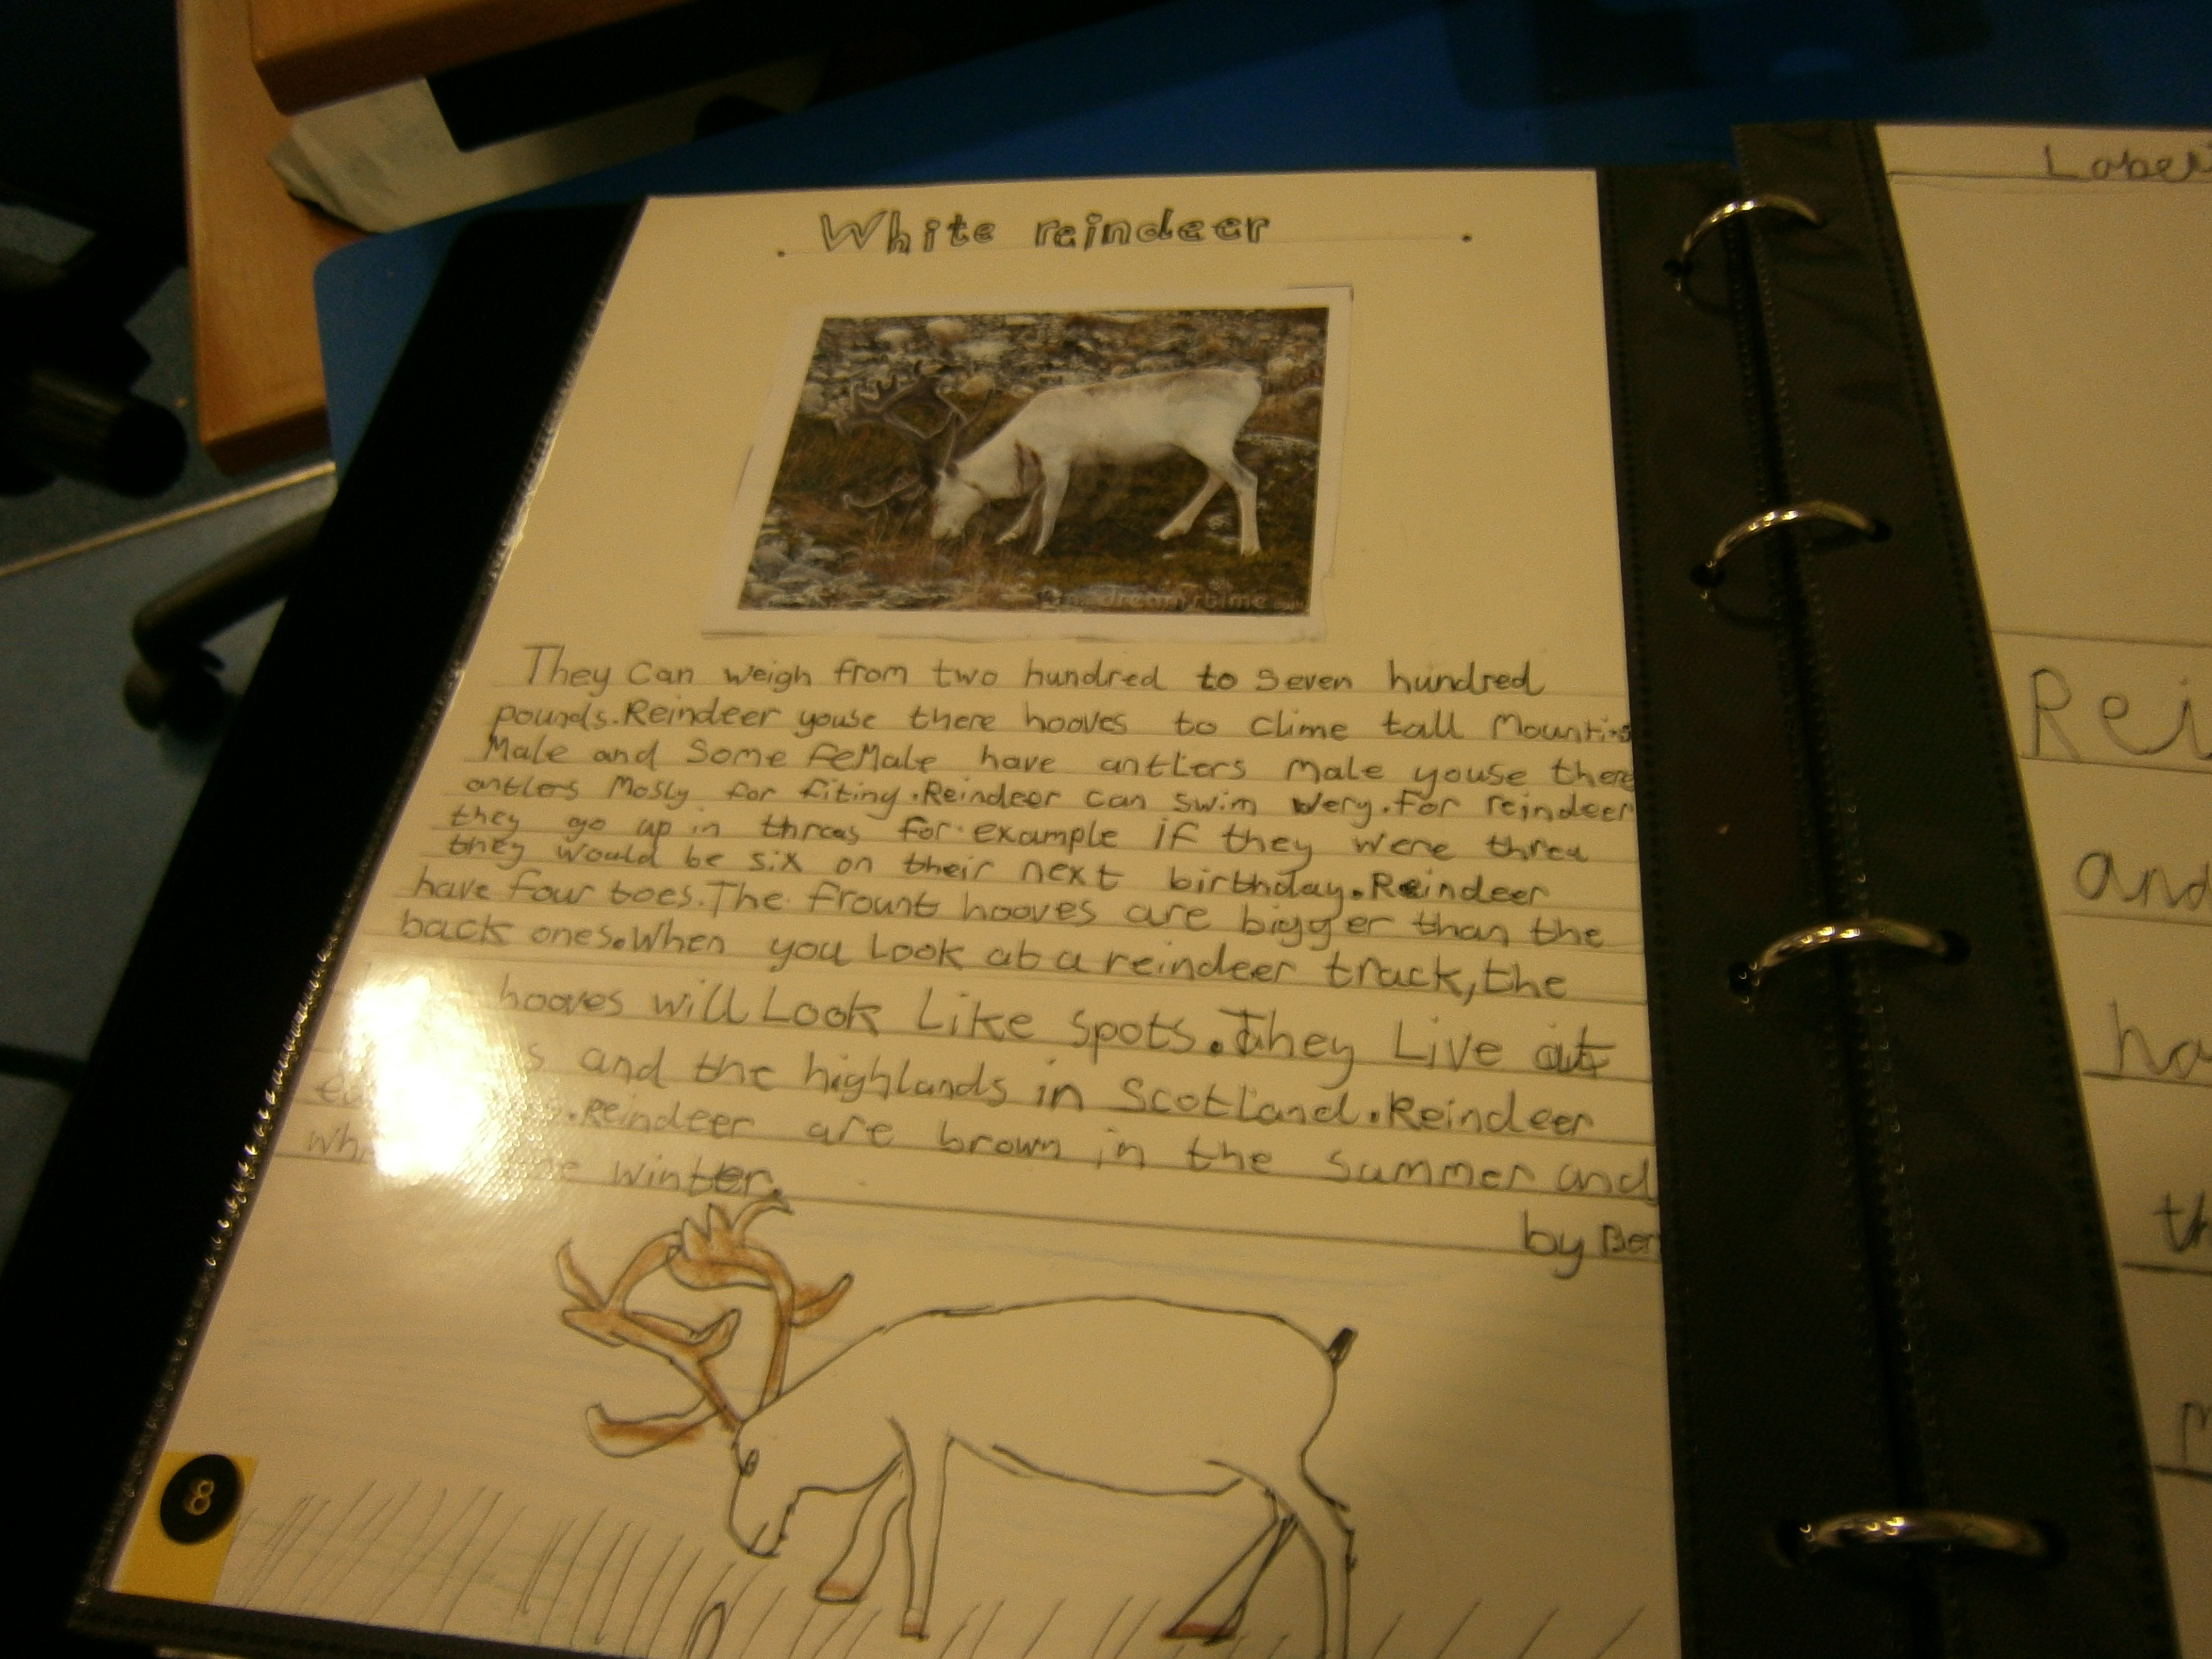 White reindeer
dreamstime
They Can weigh from two hundred to seven hundred
pounds. Reindeer youse there hooves to clime tall
Male and Some feMale have antlers Male youse there
antlers Mosly for fiting. Reindeer can swim Very. For reindeer
they go up in threas for example if they were threa
they would be six on their next birthday. Reindeer
have four toes. The frount hooves are bigger than the
back ones. When you Look at a reindeer track, the
hooves will Look Like spots. They Live at
and the highlands in Scotland. Reindeer
. Reindeer are brown in the summer and
winter.
by Ber
8
Label
Rei
and
ha
th